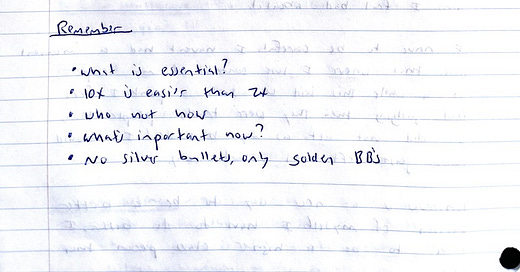 Remember
• What is essential?
• 10x is easier than 2x
• who not how
• what's important now?
• No silver bullets, only golden BB's